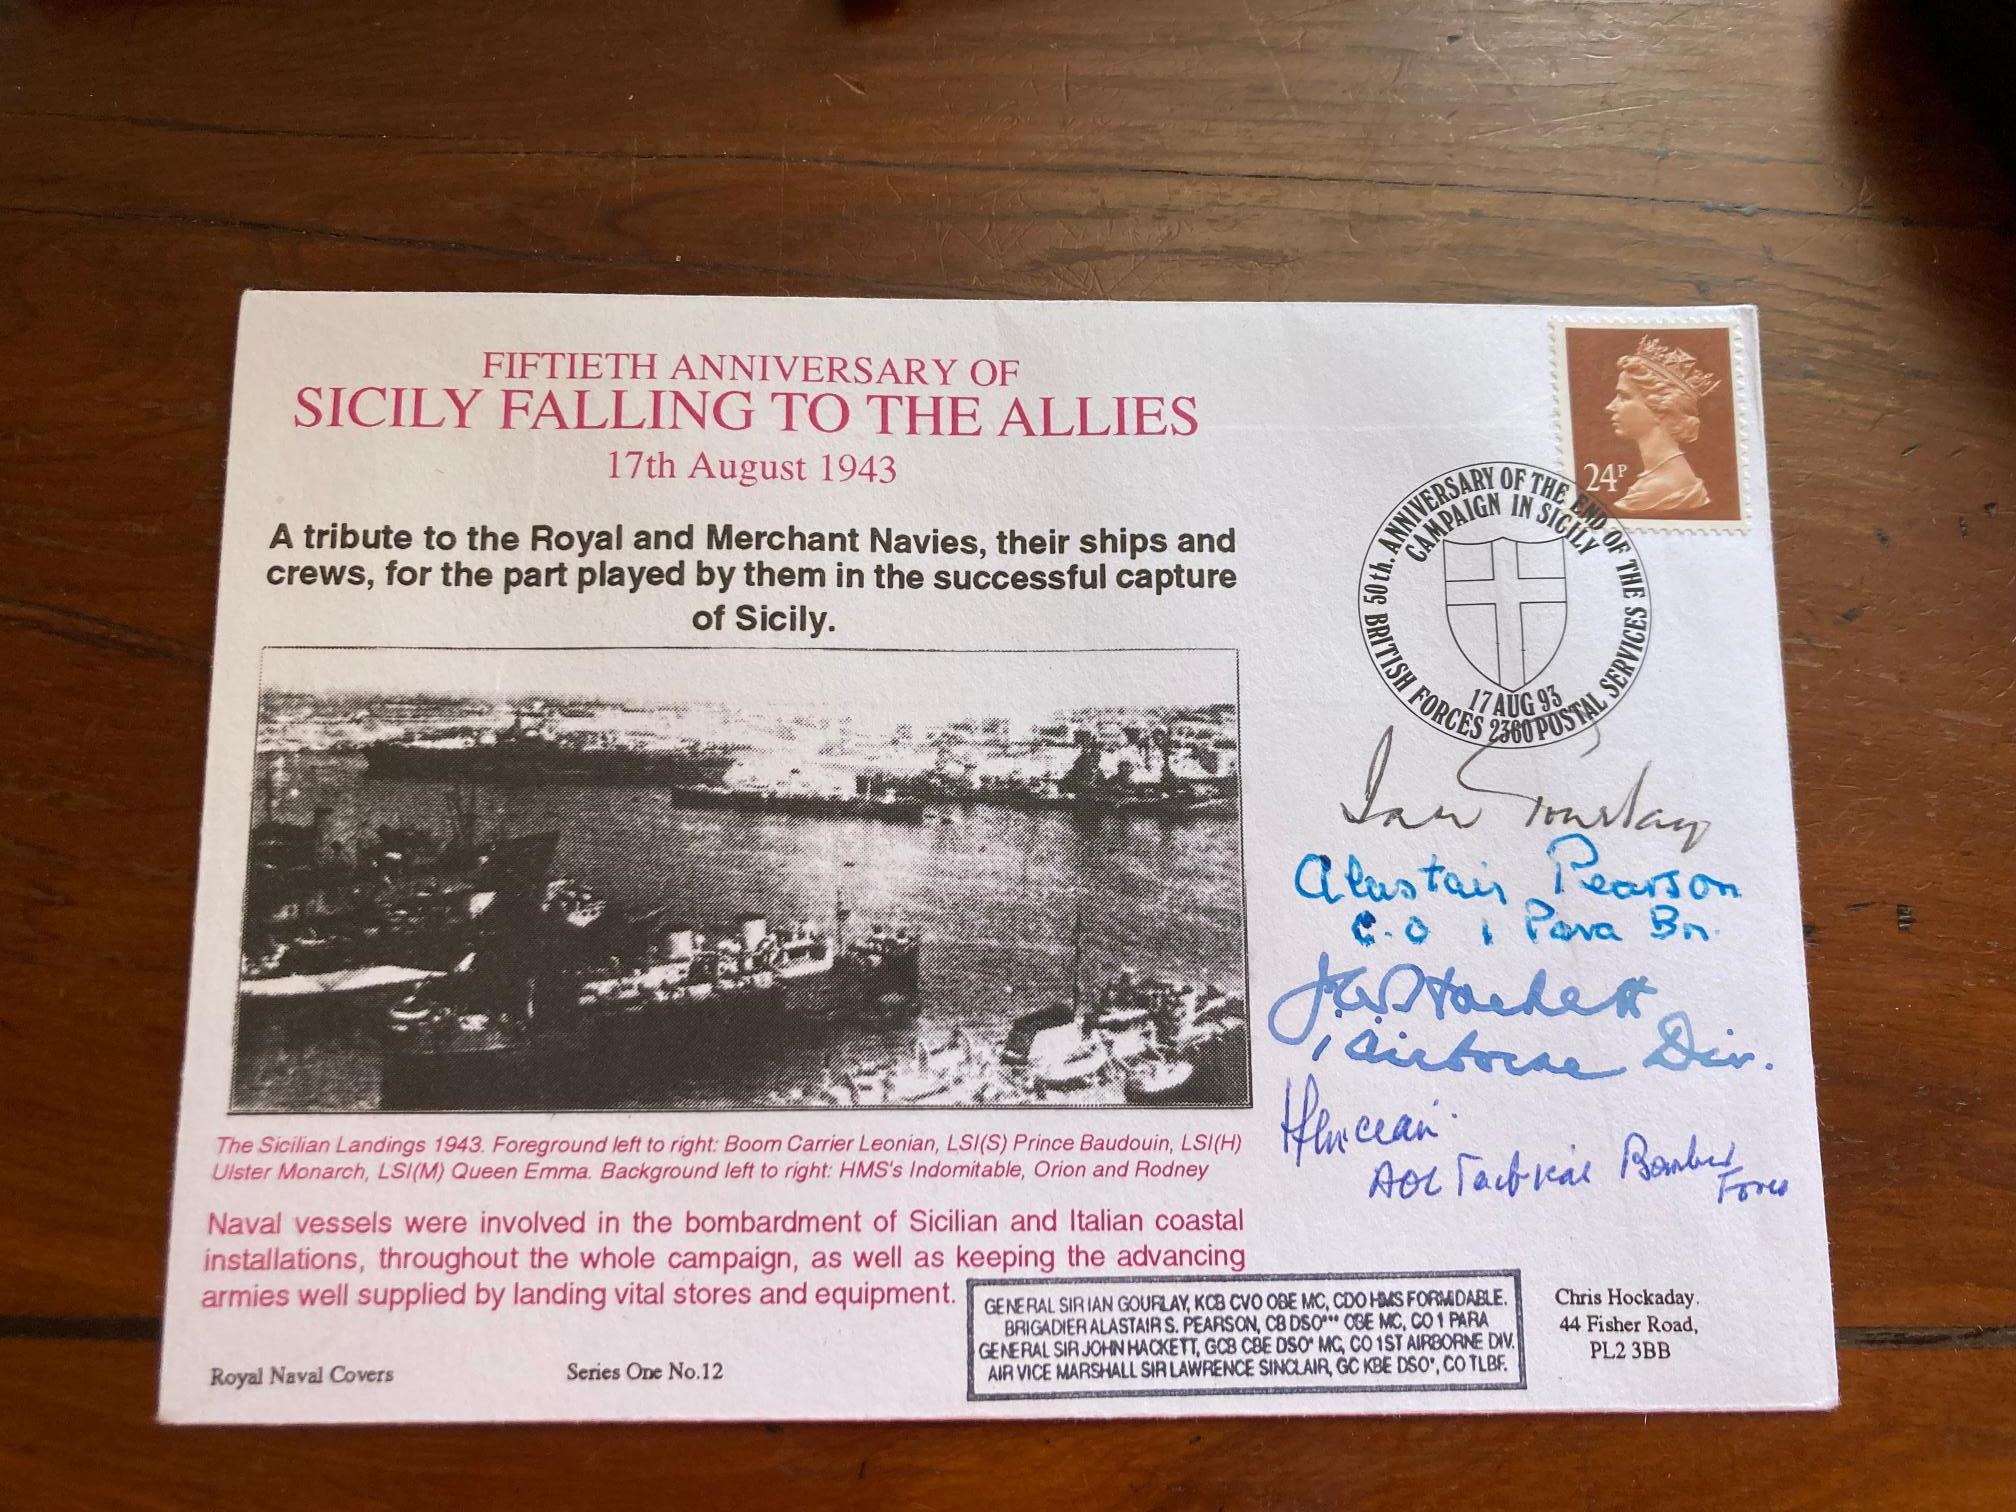 FIFTIETH ANNIVERSARY OF
SICILY FALLING TO THE ALLIES
17th August 1943
A tribute to the Royal and Merchant Navies, their ships and
crews, for the part played by them in the successful capture
of Sicily.
The Sicilian Landings 1943. Foreground left to right: Boom Carrier Leonian, LSI(S) Prince Baudouin, LSI(H)
Ulster Monarch, LSI(M) Queen Emma. Background left to right: HMS's Indomitable, Orion and Rodney
Naval vessels were involved in the bombardment of Sicilian and Italian coastal
installations, throughout the whole campaign, as well as keeping the advancing
armies well supplied by landing vital stores and equipment.
Royal Naval Covers
Series One No.12
24P
50th. ANNIVERSARY OF THE END OF THE
CAMPAIGN IN SICILY
17 AUG 93
BRITISH FORCES 2360 POSTAL SERVICES
Ian Gourlay
Alastair Pearson
C.O 1 Para Bn.
J.W. Hackett
1 Airborne Div.
AOC Tactical Bomber
Force
GENERAL SIR IAN GOURLAY, KCB CVO OBE MC, CDO HMS FORMIDABLE.
BRIGADIER ALASTAIR S. PEARSON, CB DSO*** OBE MC, CO 1 PARA
GENERAL SIR JOHN HACKETT, GCB CBE DSO* MC, CO 1ST AIRBORNE DIV.
AIR VICE MARSHALL SIR LAWRENCE SINCLAIR, GC KBE DSO*, CO TLBF.
Chris Hockaday.
44 Fisher Road,
PL2 3BB